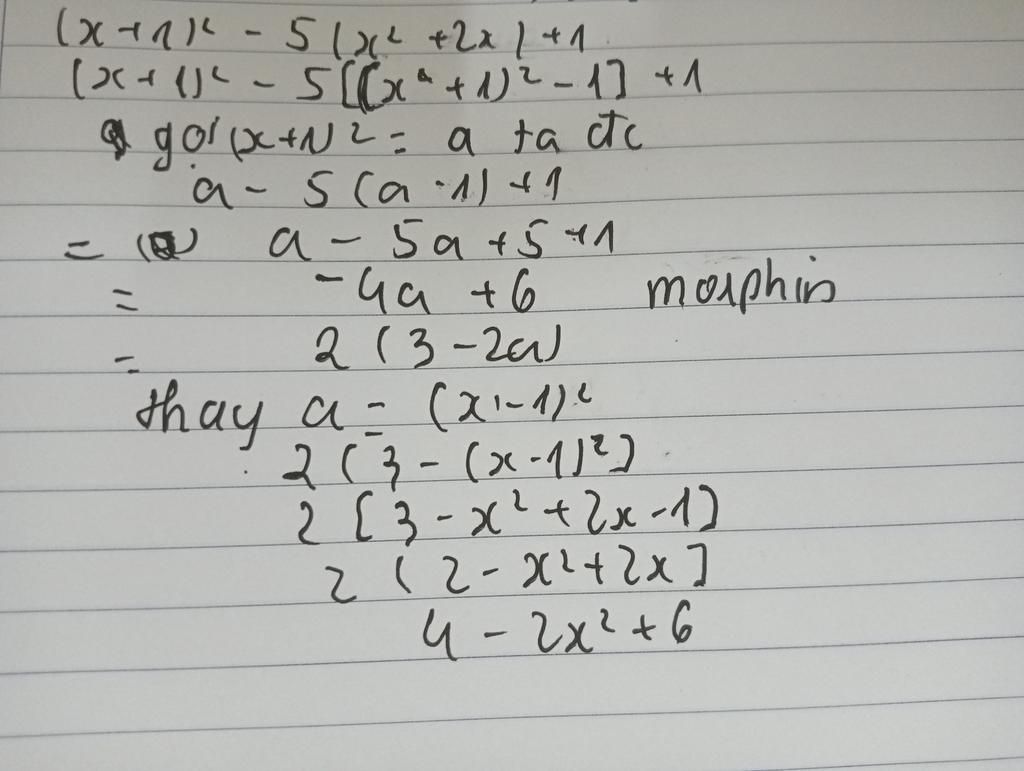 (x+1)² - 5(x² + 2x) + 1
(x+1)² - 5[(x² + 1)² - 1] + 1
gọi (x+1)² = a ta đc
a - 5(a - 1) + 1
= a - 5a + 5 + 1
= -4a + 6 morphin
= 2(3 - 2a)
thay a = (x - 1)²
2(3 - (x - 1)²]
2[3 - x² + 2x - 1]
2(2 - x² + 2x]
4 - 2x² + 6